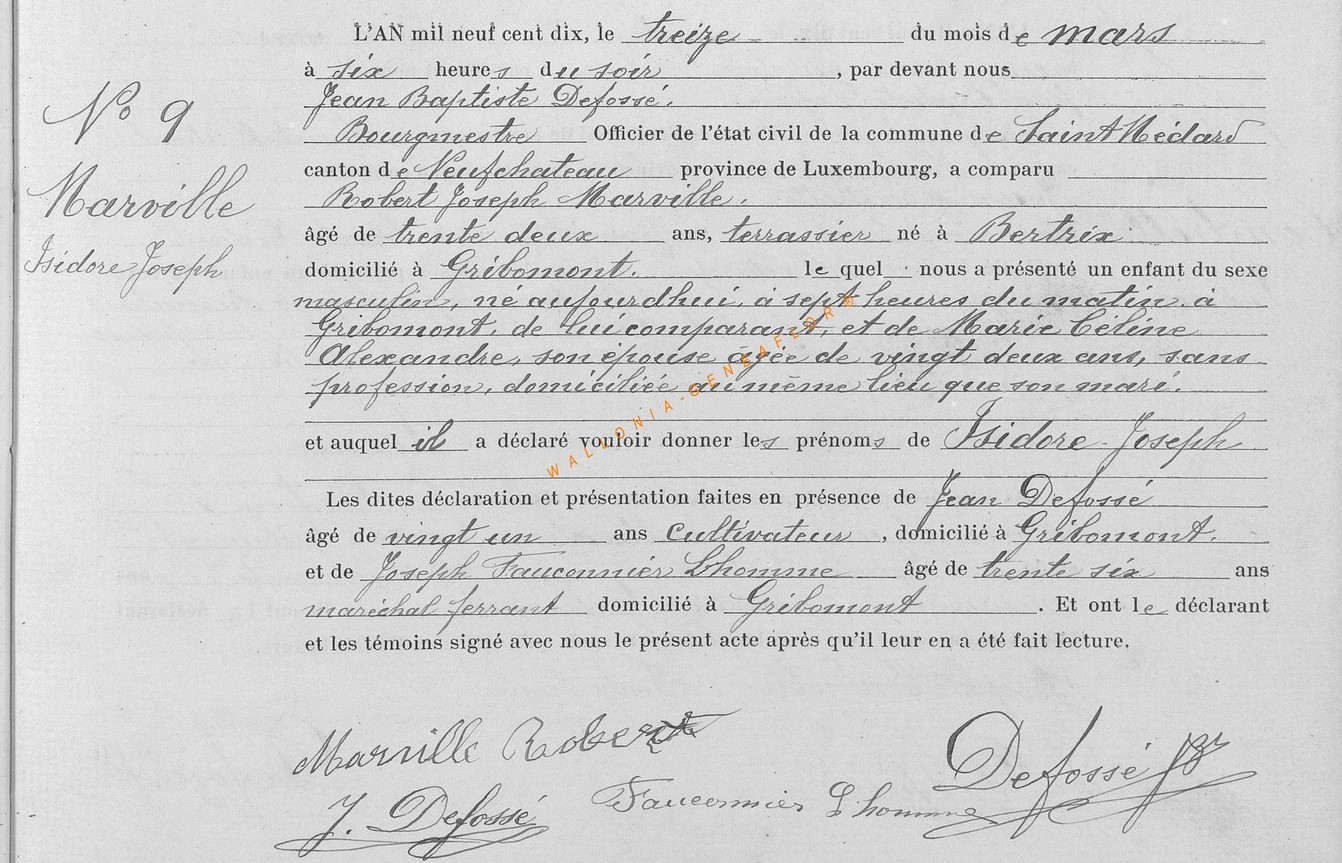 L'AN mil neuf cent dix, le treize du mois de mars
à six heures du soir, par devant nous
Jean Baptiste Defossé.
Bourgmestre Officier de l'état civil de la commune de Saint Médard
canton de Neufchateau province de Luxembourg, a comparu
Robert Joseph Marville.
âgé de trente deux ans, terrassier né à Bertrix
domicilié à Gribomont. le quel nous a présenté un enfant du sexe
masculin, né aujourdhui, à sept heures du matin, à
Gribomont, de lui comparant, et de Marie Céline
Alexandre, son épouse agée de vingt deux ans, sans
profession, domiciliée au même lieu que son mari.
et auquel il a déclaré vouloir donner les prénoms de Isidore Joseph
Les dites déclaration et présentation faites en présence de Jean Defossé
âgé de vingt un ans cultivateur, domicilié à Gribomont.
et de Joseph Fauconnier Lhomme âgé de trente six ans
maréchal ferrant domicilié à Gribomont. Et ont le déclarant
et les témoins signé avec nous le présent acte après qu'il leur en a été fait lecture.
No 9
Marville
Isidore Joseph
WALLONIA-GENEAFLORE
Marville Robert
Defossé JB
J. Defossé
Fauconnier Lhomme